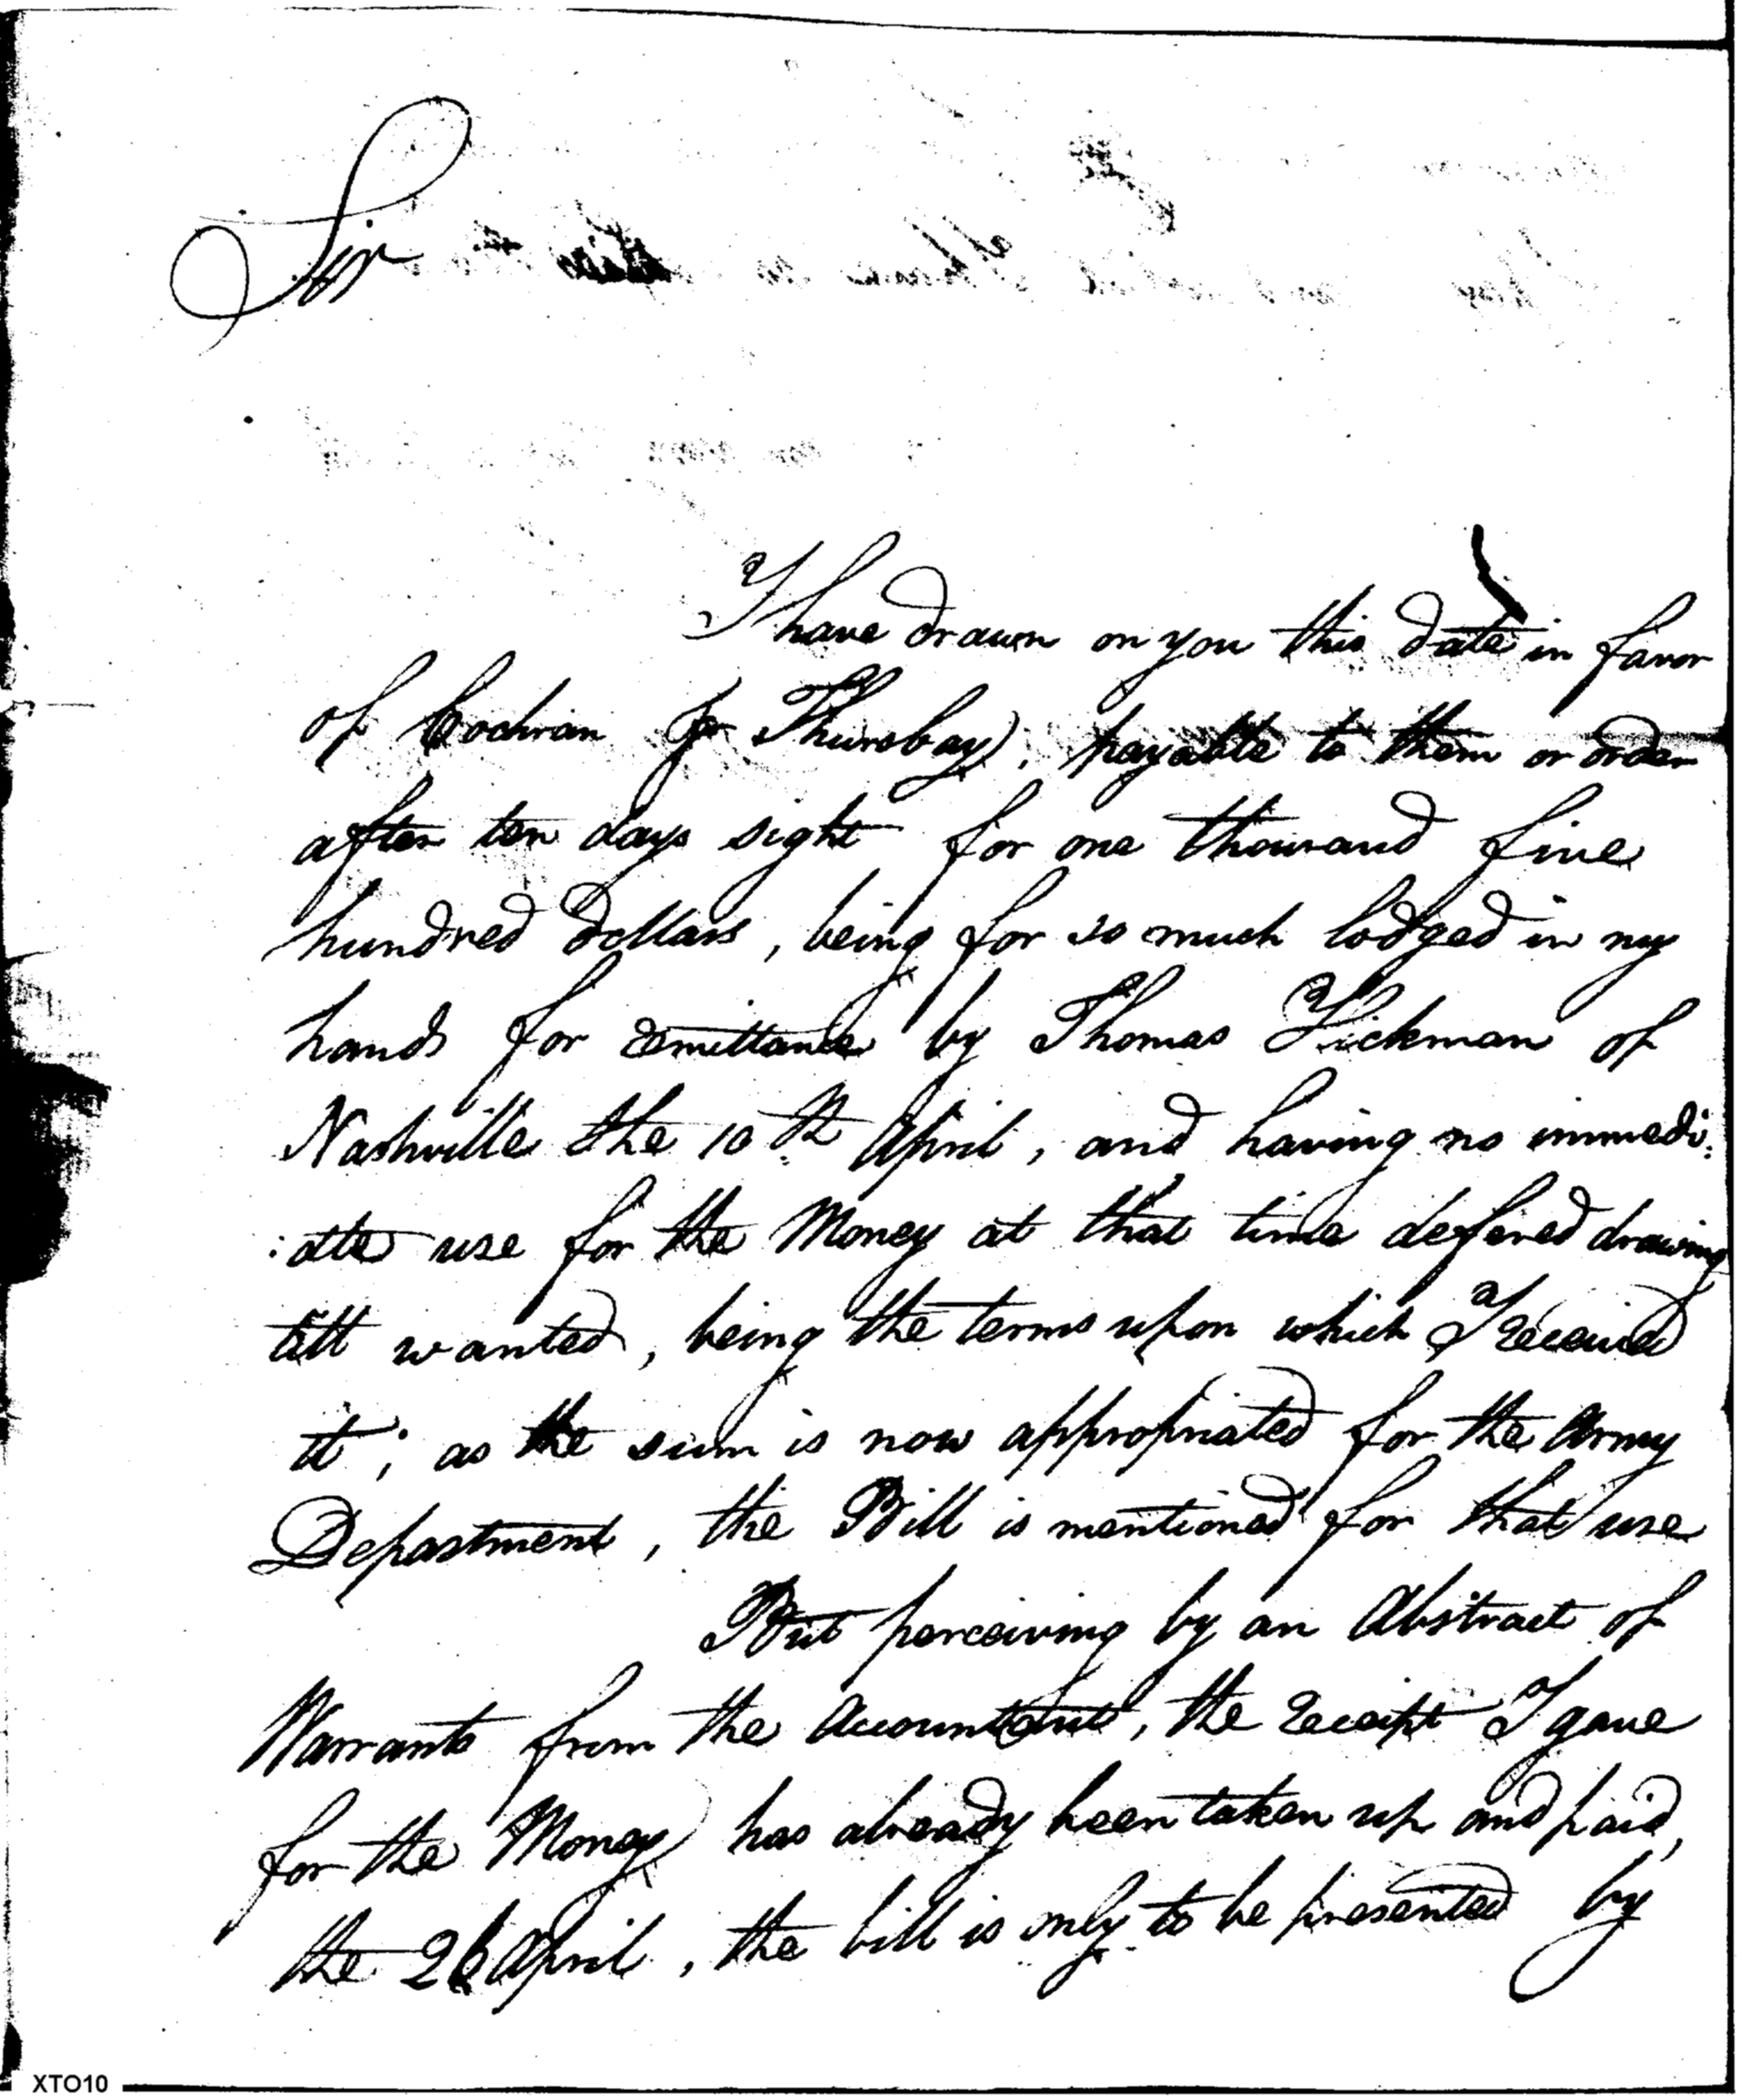 Sir
I have drawn on you this date in favor
of Cochran & Thursbay, payable to them or order
after ten days sight for one thousand five
hundred Dollars, being for so much lodged in my
hands for remittance by Thomas Hickman of
Nashville the 10th April, and having no immedi:
:ate use for the Money at that time defered drawing
till wanted, being the terms upon which I received
it; as the sum is now appropriated for the Army
Department, the Bill is mentioned for that use
But perceiving by an Abstract of
Warrants from the Accountant, the receipt I gave
for the Money has already been taken up and paid,
the 26 April, the bill is only to be presented by
XTO10